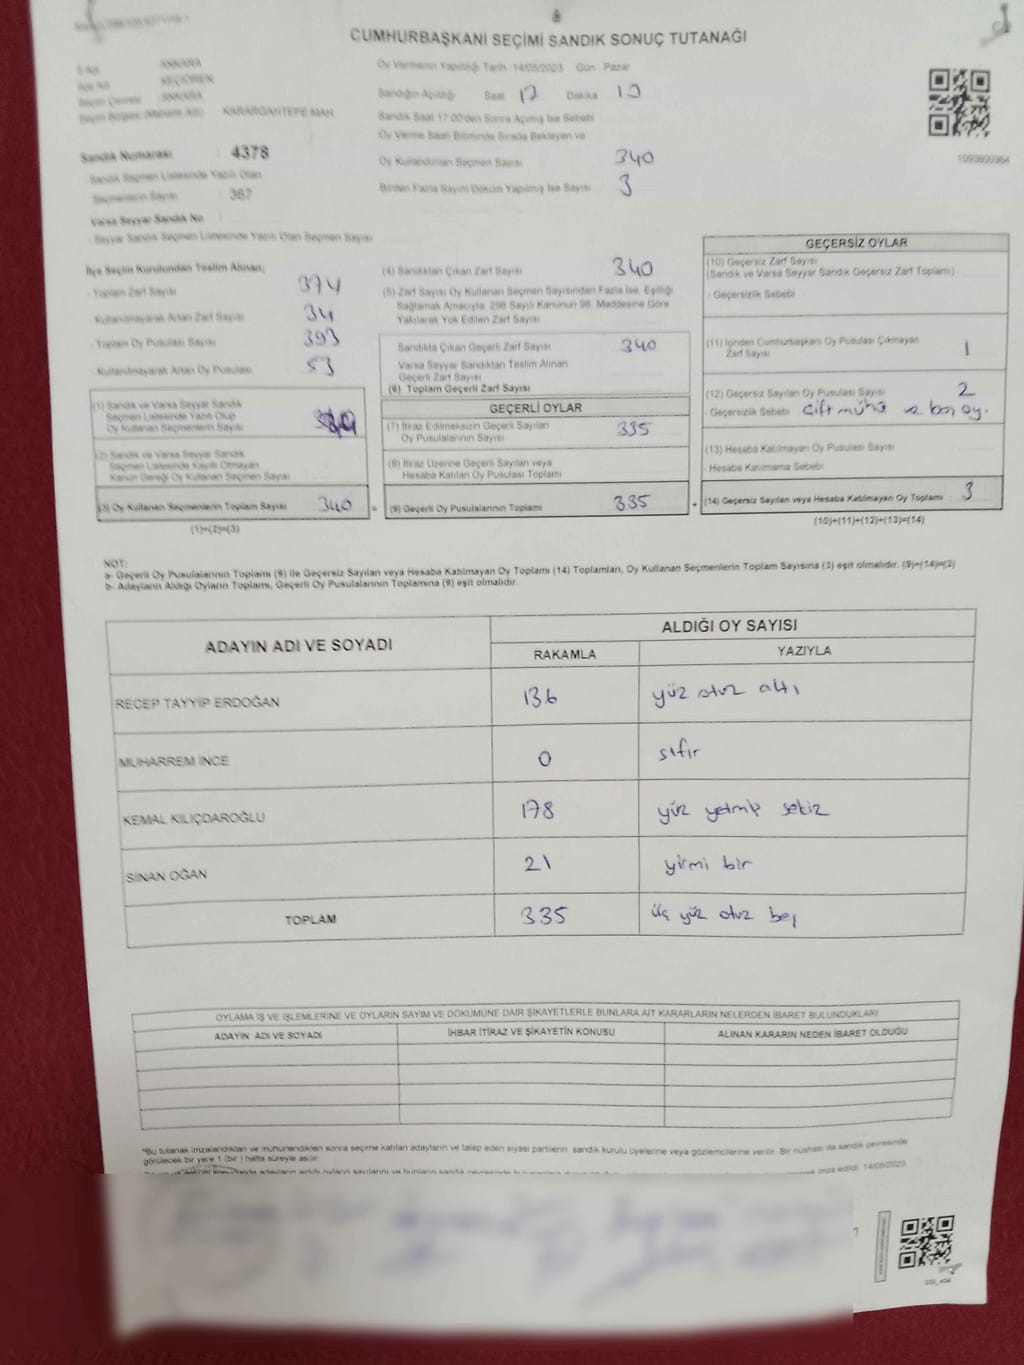 CUMHURBAŞKANI SEÇİMİ SANDIK SONUÇ TUTANAĞI
ANKARA
KEÇİÖREN
ANKARA
KARARGANTEPE MAH
Oy Vermenin Yapıldığı Tarih :14/05/2023 Gün : Pazar
Sandığın Açıldığı Saat 17 Dakika
Sandık Saat 17:00'den Sonra Açımış İse Sebebi
Oy Verme Saati Bitiminde Sırada Bekleyen ve
Oy Kullandırılan Seçmen Sayısı 340
Birden Fazla Sayım Döküm Yapılmış İse Sayısı 3
1093800364
Sandık Numarası : 4378
Sandık Seçmen Listesinde Yazılı Olan
Seçmenlerin Sayısı : 367
Varsa Seyyar Sandık No
- Seyyar Sandık Seçmen Listesinde Yazılı Olan Seçmen Sayısı
İlçe Seçim Kurulundan Teslim Alınan;
- Toplam Zarf Sayısı 374
- Kullanılmayarak Artan Zarf Sayısı 34
- Toplam Oy Pusulası Sayısı 393
- Kullanılmayarak Artan Oy Pusulası 53
(1) Sandık ve Varsa Seyyar Sandık
Seçmen Listesinde Yazılı Olup
Oy Kullanan Seçmenlerin Sayısı
(2) Sandık ve Varsa Seyyar Sandık
Seçmen Listesinde Kayıtlı Olmayan
Kanun Gereği Oy Kullanan Seçmen Sayısı
(3) Oy Kullanan Seçmenlerin Toplam Sayısı 340
(1)+(2)=(3)
(4) Sandıktan Çıkan Zarf Sayısı 340
(5) Zarf Sayısı Oy Kullanan Seçmen Sayısından Fazla İse, Eşitliği
Sağlamak Amacıyla, 298 Sayılı Kanunun 98. Maddesine Göre
Yakılarak Yok Edilen Zarf Sayısı
Sandıkta Çıkan Geçerli Zarf Sayısı 340
Varsa Seyyar Sandıktan Teslim Alınan
Geçerli Zarf Sayısı
(6) Toplam Geçerli Zarf Sayısı
GEÇERLİ OYLAR
(7) İtiraz Edilmeksizin Geçerli Sayılan
Oy Pusulalarının Sayısı 335
(8) İtiraz Üzerine Geçerli Sayılan veya
Hesaba Katılan Oy Pusulası Toplamı
= (9) Geçerli Oy Pusulalarının Toplamı 335 +
GEÇERSİZ OYLAR
(10) Geçersiz Zarf Sayısı
(Sandık ve Varsa Seyyar Sandık Geçersiz Zarf Toplamı)
- Geçersizlik Sebebi
(11) İçinden Cumhurbaşkanı Oy Pusulası Çıkmayan
Zarf Sayısı 1
(12) Geçersiz Sayılan Oy Pusulası Sayısı 2
- Geçersizlik Sebebi Çift mühü ve boş oy.
(13) Hesaba Katılmayan Oy Pusulası Sayısı
- Hesaba Katılmama Sebebi
(14) Geçersiz Sayılan veya Hesaba Katılmayan Oy Toplamı 3
(10)+(11)+(12)+(13)=(14)
NOT:
a- Geçerli Oy Pusulalarının Toplamı (9) ile Geçersiz Sayılan veya Hesaba Katılmayan Oy Toplamı (14) Toplamları, Oy Kullanan Seçmenlerin Toplam Sayısına (3) eşit olmalıdır. (9)+(14)=(3)
b- Adayların Aldığı Oyların Toplamı, Geçerli Oy Pusulalarının Toplamına (9) eşit olmalıdır.
ADAYIN ADI VE SOYADI
ALDIĞI OY SAYISI
RAKAMLA YAZIYLA
RECEP TAYYİP ERDOĞAN 136 yüz otuz altı
MUHARREM İNCE 0 sıfır
KEMAL KILIÇDAROĞLU 178 yüz yetmiş sekiz
SİNAN OĞAN 21 yirmi bir
TOPLAM 335 üç yüz otuz beş
OYLAMA İŞ VE İŞLEMLERİNE VE OYLARIN SAYIM VE DÖKÜMÜNE DAİR ŞİKAYETLERLE BUNLARA AİT KARARLARIN NELERDEN İBARET BULUNDUKLARI
ADAYIN ADI VE SOYADI İHBAR İTİRAZ VE ŞİKAYETİN KONUSU ALINAN KARARIN NEDEN İBARET OLDUĞU
*Bu tutanak imzalandıktan ve mühürlendikten sonra seçime katılan adayların ve talep eden siyasi partilerin sandık kurulu üyelerine veya gözlemcilerine verilir. Bir nüshası da sandık çevresinde
görülecek bir yere 1 (bir ) hafta süreyle asılır.
imza edildi. 14/05/2023